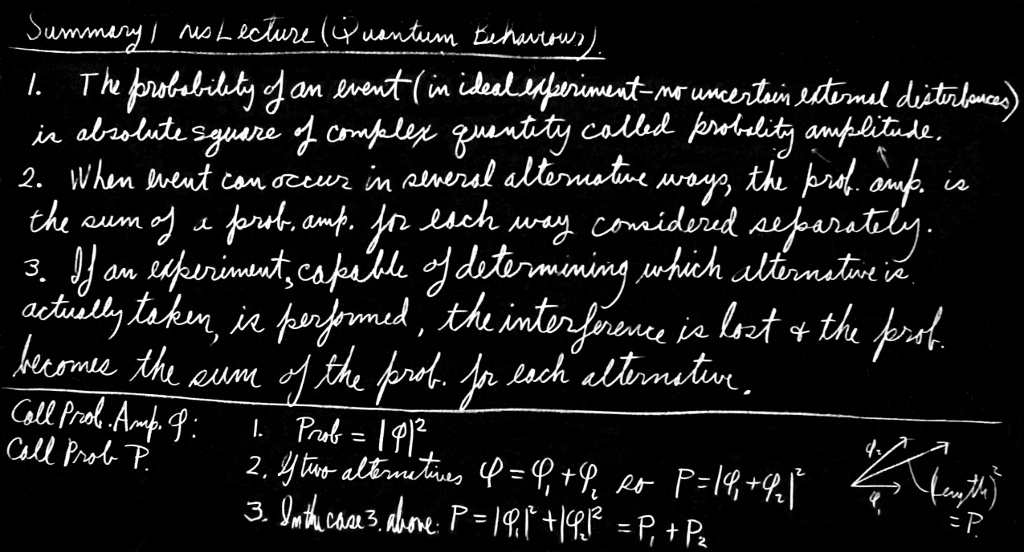 Summary / res Lecture (Quantum Behaviour).
1. The probability of an event (in ideal experiment-no uncertain external disturbances)
is absolute square of complex quantity called probality amplitude.
2. When event can occur in several alternative ways, the prob. amp. is
the sum of a prob. amp. for each way considered separately.
3. If an experiment, capable of determining which alternative is
actually taken, is performed, the interference is lost & the prob.
becomes the sum of the prob. for each alternative.
Call Prob. Amp. φ:
Call Prob P.
1. Prob = |φ|²
2. If two alternatives φ = φ₁ + φ₂ so P = |φ₁ + φ₂|²
3. In the case 3. above: P = |φ₁|² + |φ₂|² = P₁ + P₂
φ₂
φ₁
(length)²
= P.